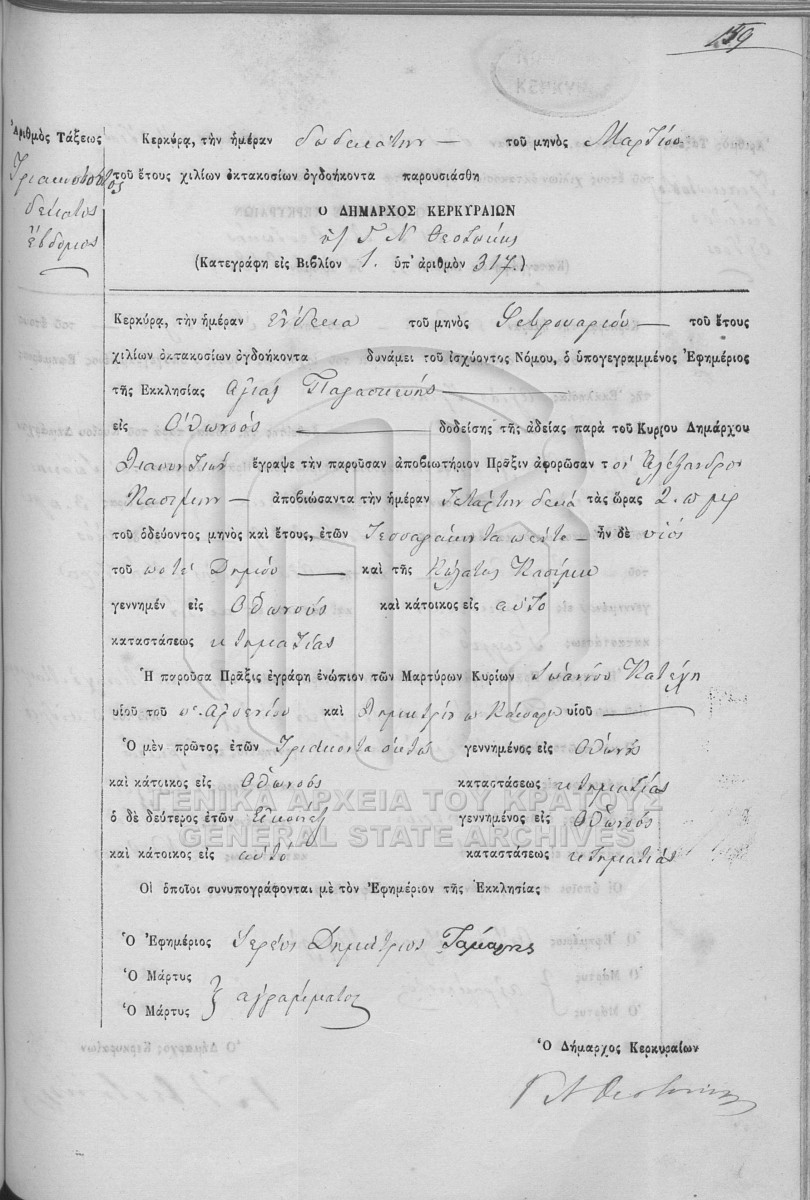 159
Ἀριθμὸς Τάξεως
Τριακοσιοστὸς
δέκατος
ἕβδομος
Κερκύρᾳ, τὴν ἡμέραν δωδεκάτην τοῦ μηνὸς Μαρτίου
τοῦ ἔτους χιλίων ὀκτακοσίων ὀγδοήκοντα παρουσιάσθη
Ο ΔΗΜΑΡΧΟΣ ΚΕΡΚΥΡΑΙΩΝ
Γ Ν Θεοτόκης
(Κατεγράφη εἰς Βιβλίον 1. ὑπ' ἀριθμὸν 317.)
Κερκύρᾳ, τὴν ἡμέραν ἕνδεκα τοῦ μηνὸς Φεβρουαρίου τοῦ ἔτους
χιλίων ὀκτακοσίων ὀγδοήκοντα δυνάμει τοῦ ἰσχύοντος Νόμου, ὁ ὑπογεγραμμένος Ἐφημέριος
τῆς Ἐκκλησίας Αγίας Παρασκευῆς
εἰς Οθωνούς δοδείσης τῆς ἀδείας παρὰ τοῦ Κυρίου Δημάρχου
ἔγραψε τὴν παροῦσαν ἀποβιωτήριον Πρᾶξιν ἀφορῶσαν τ Αλέξανδρον
Κασίμην ἀποβιώσαντα τὴν ἡμέραν τὰς ὥρας 2. π μερ
τοῦ ὁδεύοντος μηνὸς καὶ ἔτους, ἐτῶν Τεσσαράκοντα πέντε ἦν δὲ υἱός
τοῦ ποτέ Δήμου καὶ τῆς Κασίμη
γεννημέν εἰς Οθωνούς καὶ κάτοικος εἰς αὐτό
καταστάσεως κτηματίας
Ἡ παροῦσα Πρᾶξις ἐγράφη ἐνώπιον τῶν Μαρτύρων Κυρίων Ἰωάννου Κατέχη
υἱοῦ τοῦ π Αρσενίου καὶ Δημητρίου υἱοῦ
Ὁ μὲν πρῶτος ἐτῶν Τριάκοντα ὀκτώ γεννημένος εἰς Οθωνούς
καὶ κάτοικος εἰς Οθωνούς καταστάσεως κτηματίας
ὁ δὲ δεύτερος ἐτῶν γεννημένος εἰς Οθωνούς
καὶ κάτοικος εἰς αὐτό καταστάσεως κτηματίας
Οἱ ὁποῖοι συνυπογράφονται μὲ τὸν Ἐφημέριον τῆς Ἐκκλησίας
Ὁ Ἐφημέριος Ἱερεύς Δημήτριος
Ὁ Μάρτυς
Ὁ Μάρτυς } αγράμματοι
Ὁ Δήμαρχος Κερκυραίων
Γ Ν Θεοτόκης
ΓΕΝΙΚΑ ΑΡΧΕΙΑ ΤΟΥ ΚΡΑΤΟΥΣ
GENERAL STATE ARCHIVES